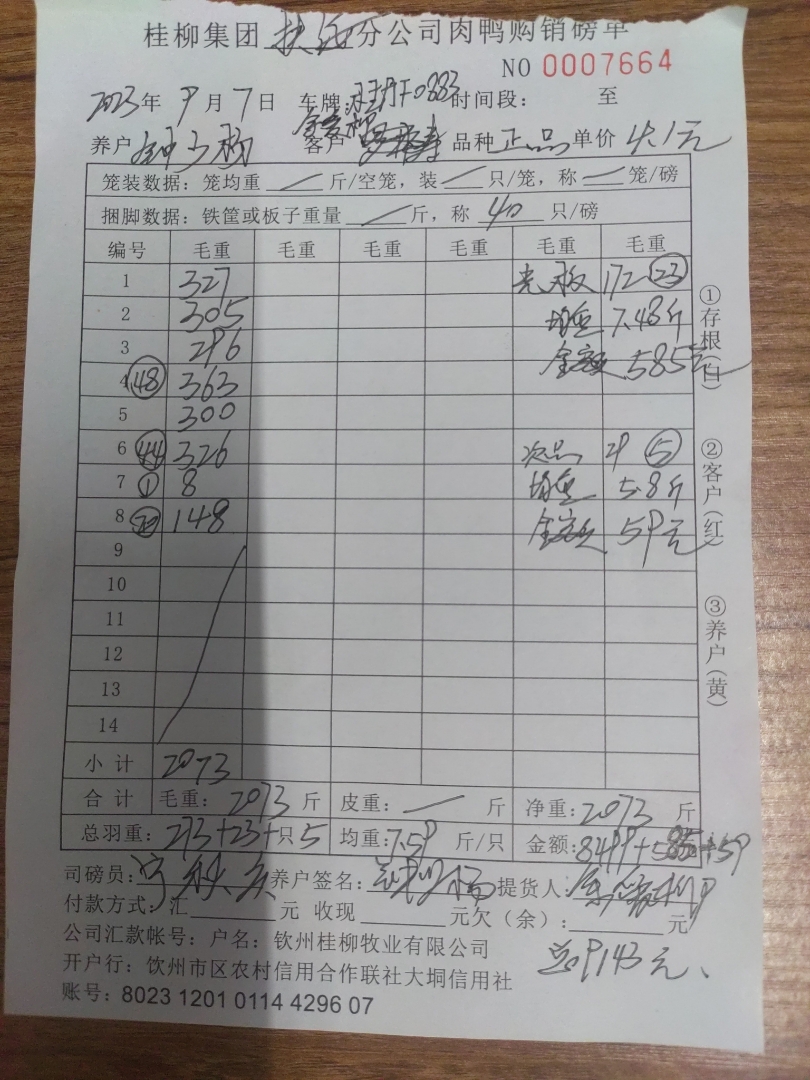 桂柳集团 扶绥 分公司肉鸭购销磅单
NO 0007664
2023年 9月 7日 车牌: F0883 时间段: 至
养户 客户 品种 正品 单价 4.1元
笼装数据: 笼均重 / 斤/空笼, 装 / 只/笼, 称 / 笼/磅
捆脚数据: 铁筐或板子重量 / 斤, 称 40 只/磅
编号 毛重 毛重 毛重 毛重 毛重 毛重
1 327 光板 172 23
2 305 均重 7.48斤
3 296 金额 585元
4 48 363
5 300
6 44 326 次品 29 5
7 1 8 均重 5.8斤
8 20 148 金额 59元
9
10
11
12
13
14
小计 2073
合计 毛重: 2073 斤 皮重: / 斤 净重: 2073 斤
总羽重: 273+23+只5 均重: 7.59 斤/只 金额: 8499+585+59
司磅员: 养户签名: 提货人:
付款方式: 汇 元 收现 元欠(余): 元
公司汇款帐号: 户名: 钦州桂柳牧业有限公司
总9143元、
开户行: 钦州市区农村信用合作联社大垌信用社
账号: 8023 1201 0114 4296 07
①存根(白)
②客户(红)
③养户(黄)